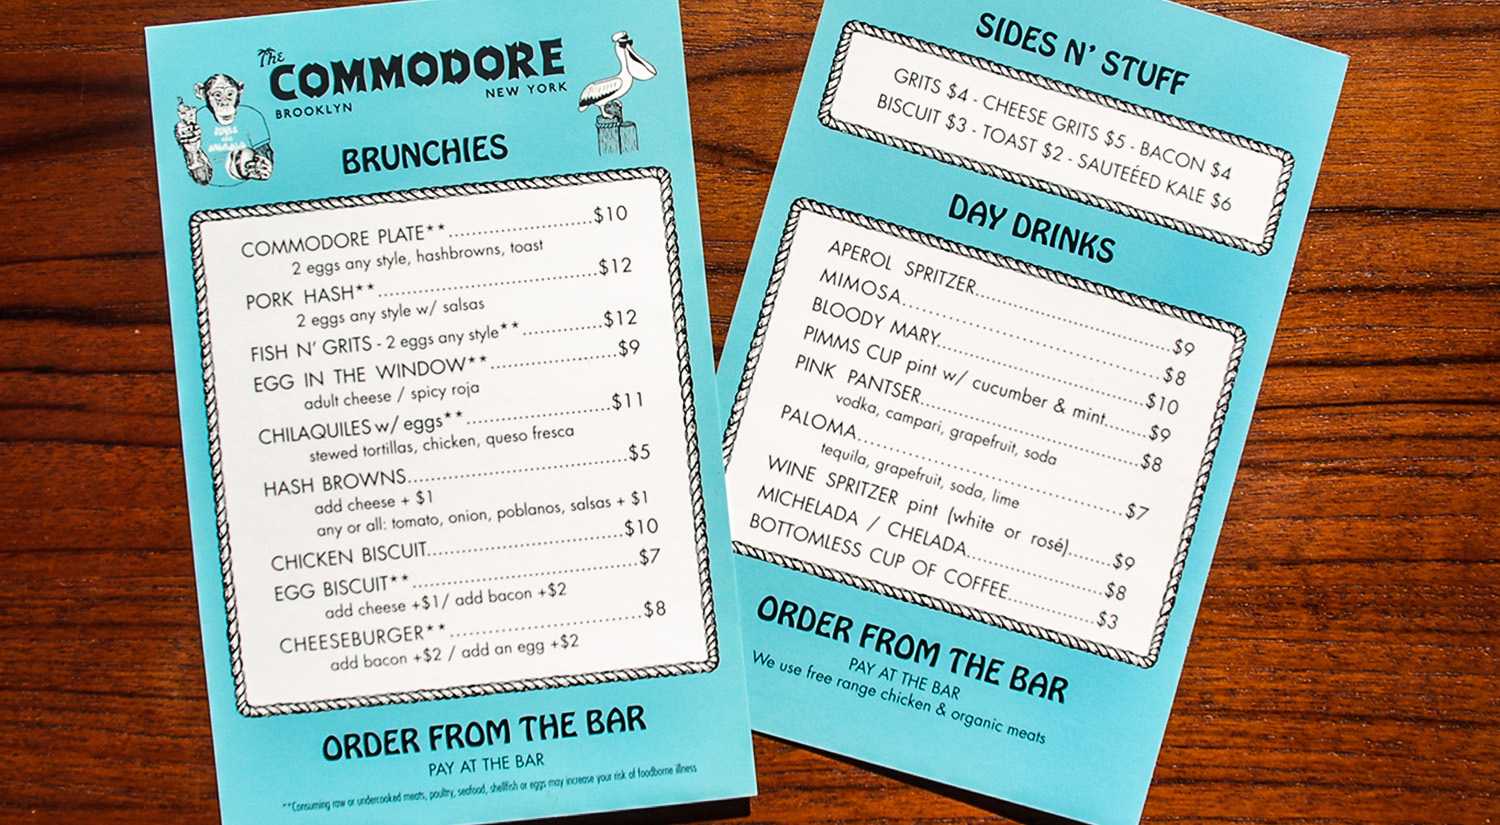 The
COMMODORE
BROOKLYN
NEW YORK
BRUNCHIES
COMMODORE PLATE**..................$10
2 eggs any style, hashbrowns, toast
PORK HASH**..................$12
2 eggs any style w/ salsas
FISH N' GRITS - 2 eggs any style**............$12
EGG IN THE WINDOW**..................$9
adult cheese / spicy roja
CHILAQUILES w/ eggs**..................$11
stewed tortillas, chicken, queso fresca
HASH BROWNS..................$5
add cheese + $1
any or all: tomato, onion, poblanos, salsas + $1
CHICKEN BISCUIT..................$10
EGG BISCUIT**..................$7
add cheese +$1/ add bacon +$2
CHEESEBURGER**..................$8
add bacon +$2 / add an egg +$2
ORDER FROM THE BAR
PAY AT THE BAR
**Consuming raw or undercooked meats, poultry, seafood, shellfish or eggs may increase your risk of foodborne illness
SIDES N' STUFF
GRITS $4 - CHEESE GRITS $5 - BACON $4
BISCUIT $3 - TOAST $2 - SAUTEÉED KALE $6
DAY DRINKS
APEROL SPRITZER..................$9
MIMOSA..................$8
BLOODY MARY..................$10
PIMMS CUP pint w/ cucumber & mint.......$9
PINK PANTSER..................$8
vodka, campari, grapefruit, soda
PALOMA..................$7
tequila, grapefruit, soda, lime
WINE SPRITZER pint (white or rosé).......$9
MICHELADA / CHELADA..................$8
BOTTOMLESS CUP OF COFFEE..................$3
ORDER FROM THE BAR
PAY AT THE BAR
We use free range chicken & organic meats